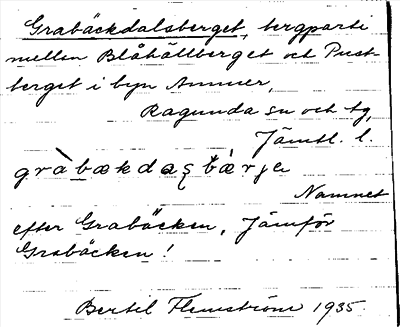 Grabäckdalsberget, bergparti
mellan Blåhällberget och Pust-
berget i byn Ammer,
Ragunda sn och tg,
Jämtl. l.
Namnet
efter Grabäcken. Jämför
Grabäcken!
Bertil Flemström 1935.